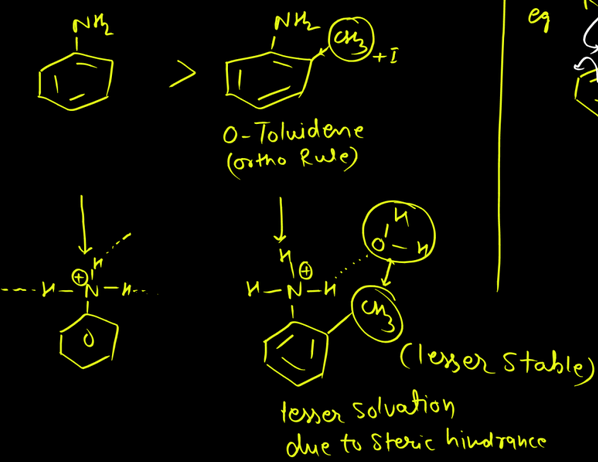 NH2
>
NH2
CH3
+I
eq
O-Toluidene
(ortho Rule)
H
⊕
H-N-H
H
O-H
H
⊕
H-N-H
CH3
(lesser stable)
lesser solvation
due to steric hindrance